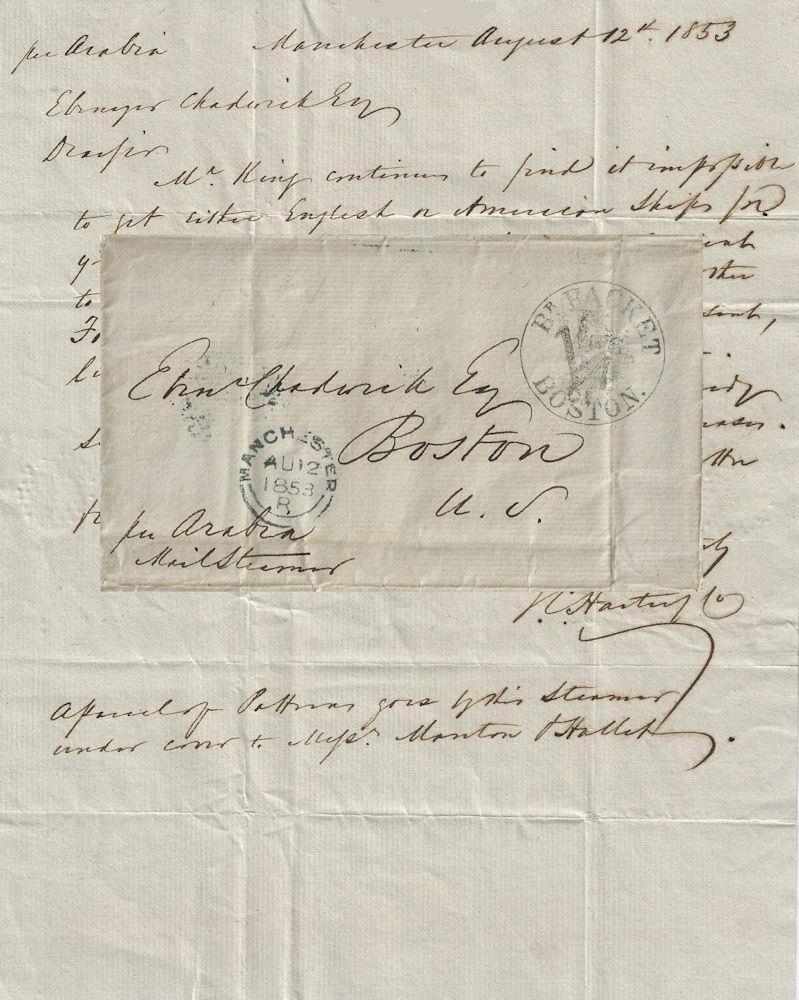 per Arabia Manchester August 12th. 1853
Ebenezer Chadwick Esq
Dear Sir
Mr King continues to find it impossible
to get either English or American Ships for
y
to
Fo
BR PACKET
BOSTON.
Ebnr Chadwick Esq
Boston
U. S.
MANCHESTER
AU 12
1853
R
per Arabia
Mail Steamer
Co
A parcel of Patterns goes by this Steamer
under cover to Messrs. Manton & Hallett.